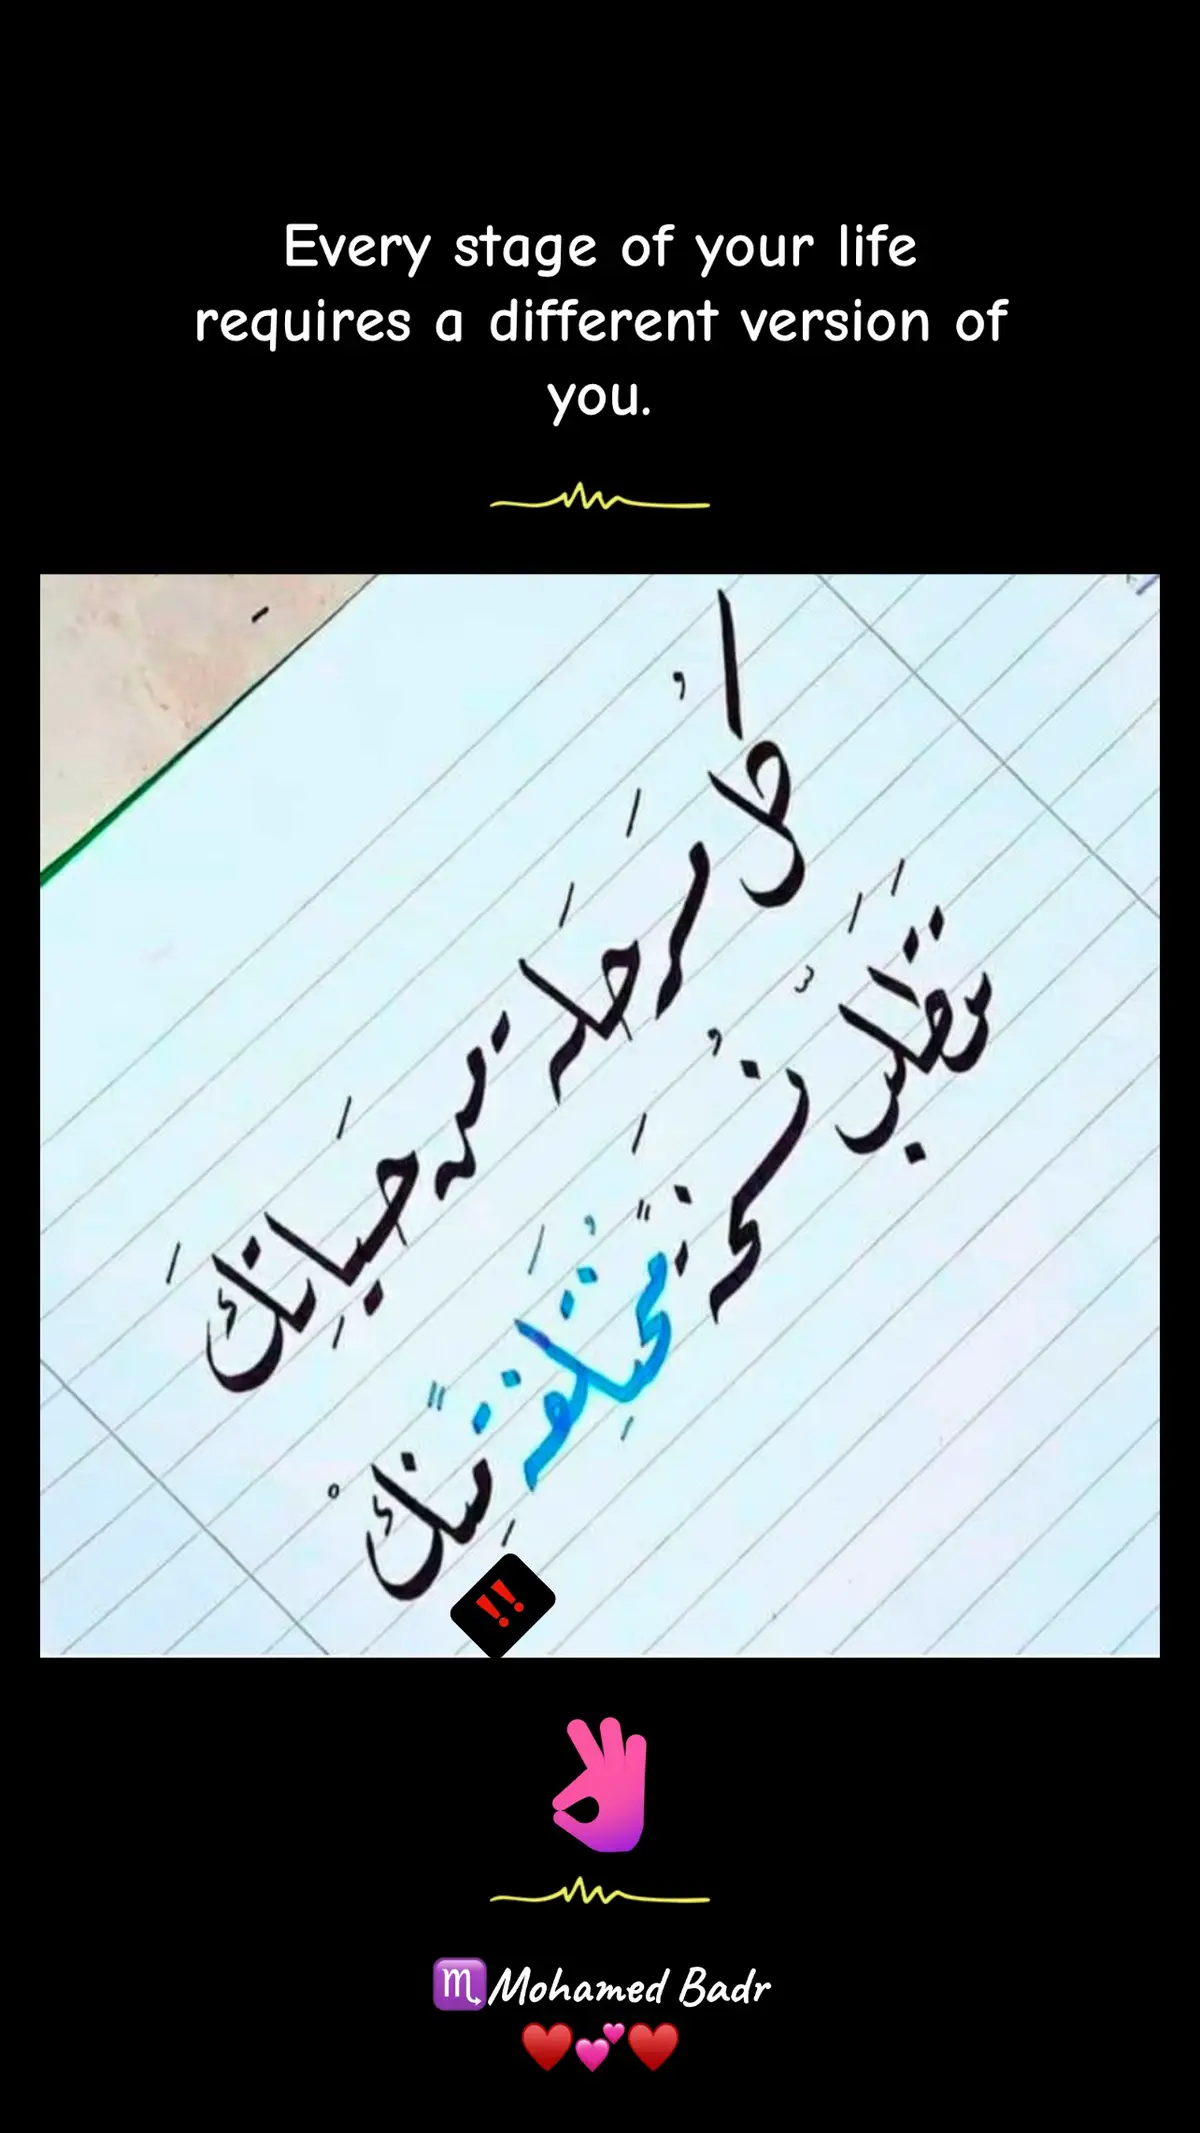 Every stage of your life
requires a different version of
you.
كُل مَرحَلة من حَياتِكَ
تَتَطلبُ نُسخَةً مُختَلِفَةً مِنكْ
‼️
♏Mohamed Badr
♥️💕♥️